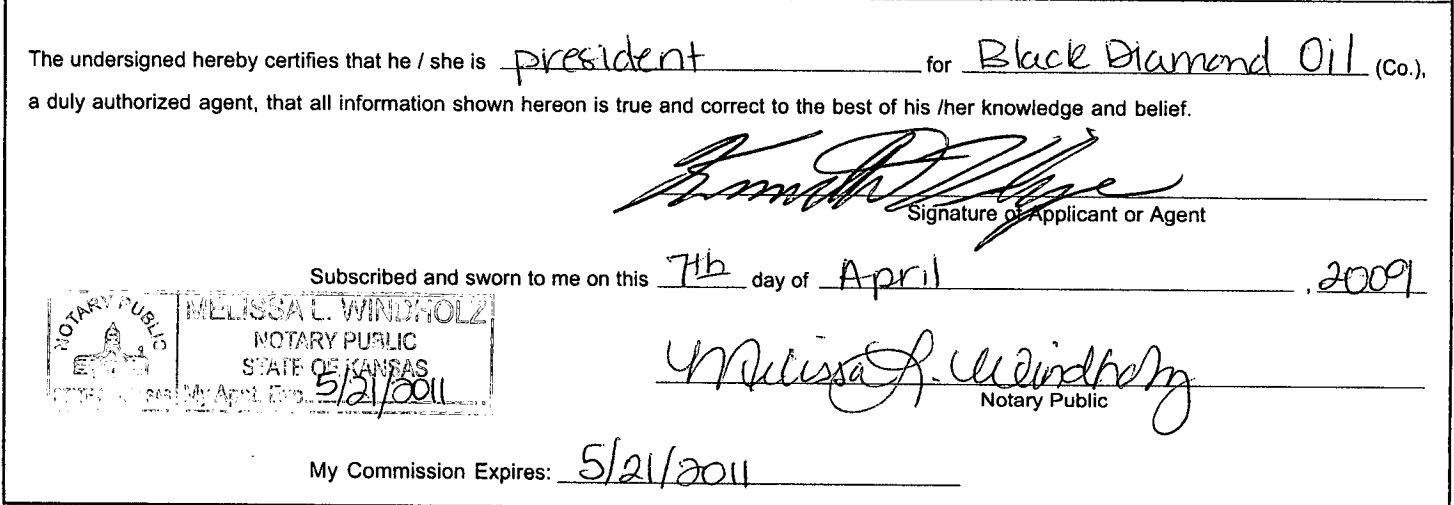 The undersigned hereby certifies that he / she is president for Black Diamond Oil (Co.),
a duly authorized agent, that all information shown hereon is true and correct to the best of his /her knowledge and belief.
Kenneth
Signature of Applicant or Agent
Subscribed and sworn to me on this 7th day of April , 2009
NOTARY PUBLIC
MELISSA L. WINDHOLZ
NOTARY PUBLIC
STATE OF KANSAS
My Appt. Exp. 5/21/2011
Melissa L. Windholz
Notary Public
My Commission Expires: 5/21/2011